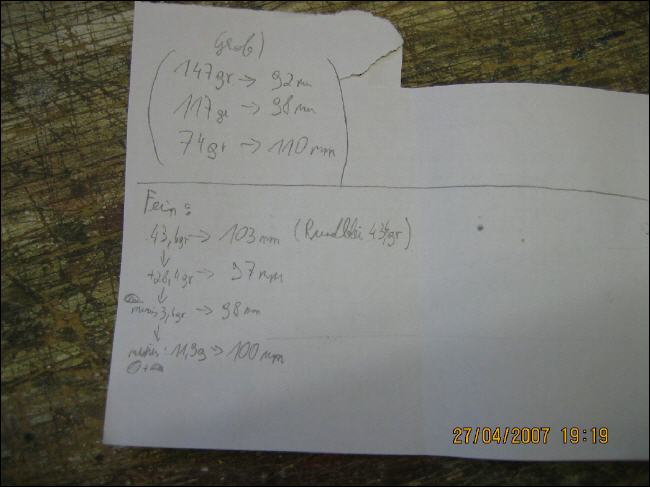 Grob)
147gr → 92mm
117gr → 98mm
74gr → 110mm
Fein:
43,6gr → 103mm (Rundblei 43,6gr)
+28,4gr → 97mm
minus 3,6gr → 98mm
minus: 11,9g → 100mm
27/04/2007 19:19